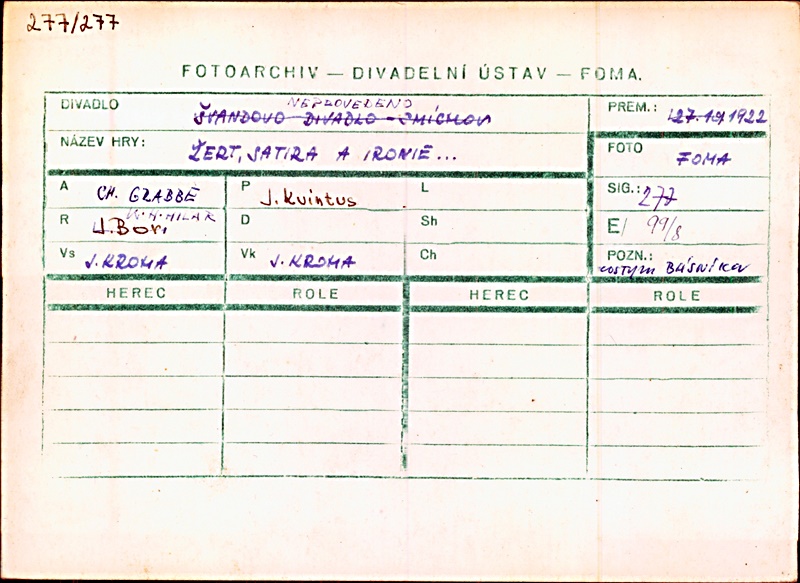 277/277
FOTOARCHIV — DIVADELNÍ ÚSTAV — FOMA.
DIVADLO NEPROVEDENO
ŠVANDOVO DIVADLO - SMÍCHOV
PREM.: 27.1.1922
NÁZEV HRY: ŽERT, SATIRA A IRONIE...
FOTO FOMA
A CH. GRABBE P J. Kvintus L SIG.: 277
R J. Bor. K. H. HILAR D Sh E/ 99/8
Vs J. KROHA Vk J. KROHA Ch POZN.: kostym BÁSNÍKA
HEREC ROLE HEREC ROLE